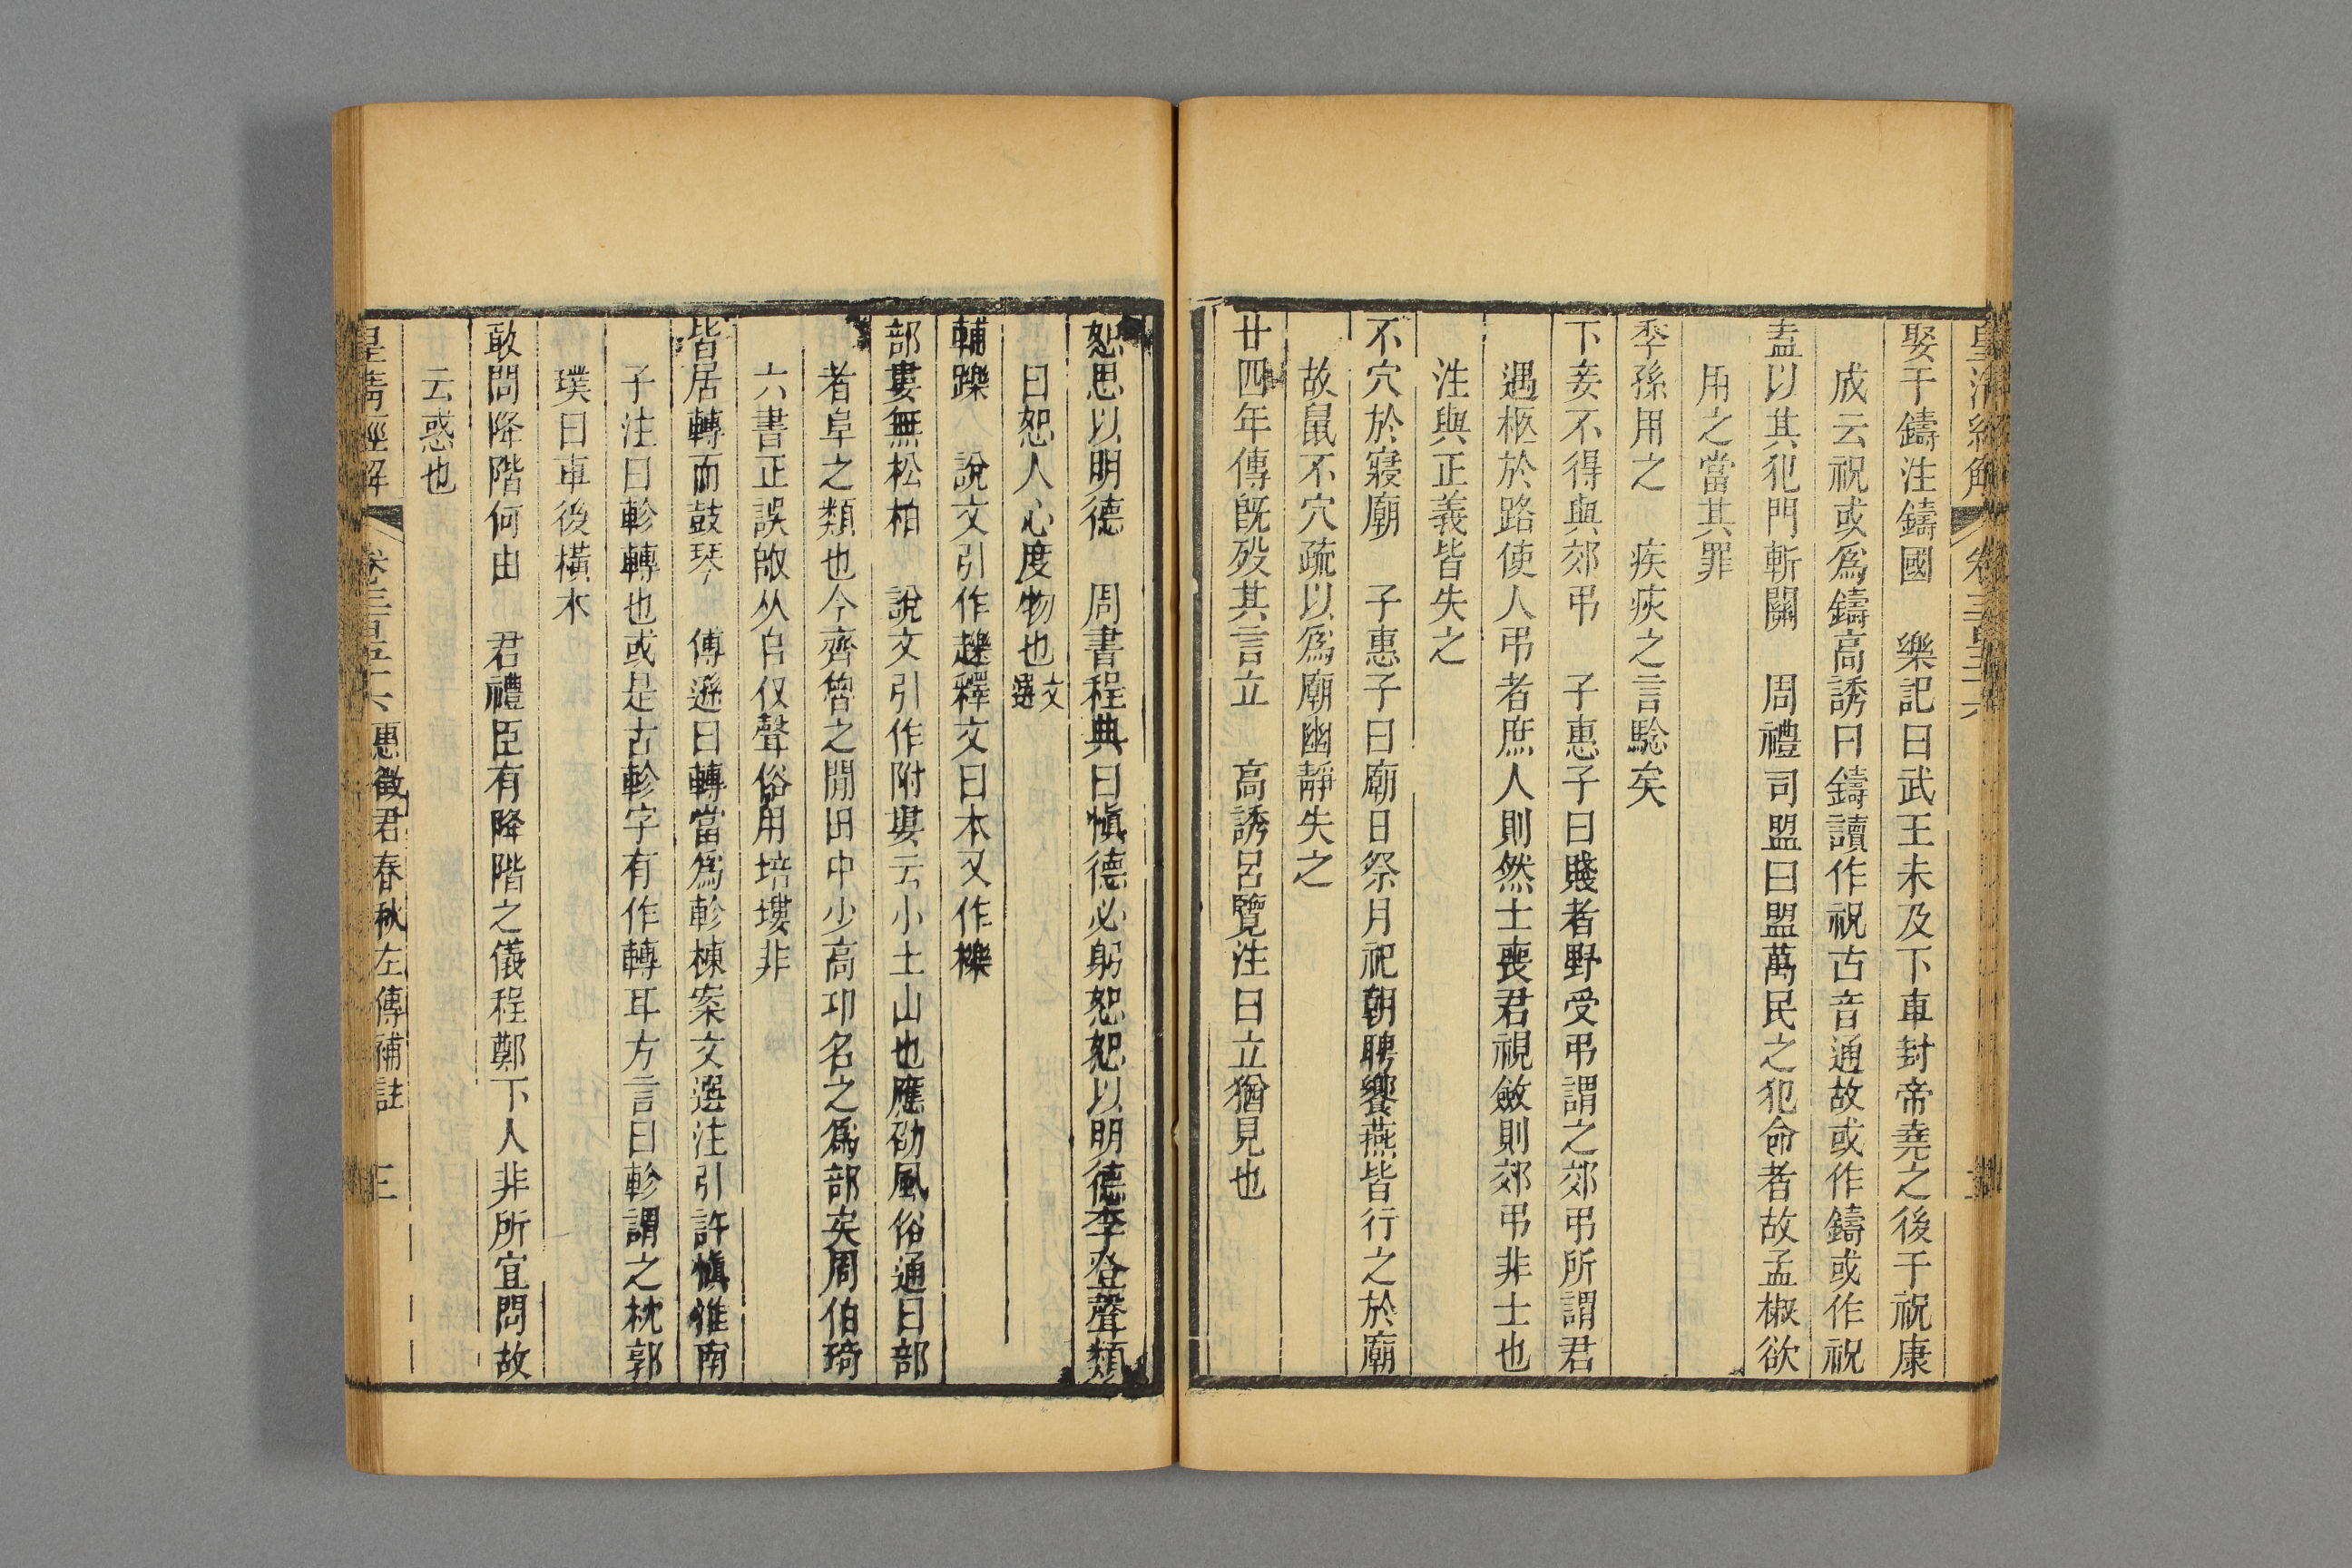 皇清經解 卷三百五十六
娶于鑄注鑄國 樂記曰武王未及下車封帝堯之後于祝康
成云祝或爲鑄高誘曰鑄讀作祝古音通故或作鑄或作祝
盍以其犯門斬關 周禮司盟曰盟萬民之犯命者故孟椒欲
用之當其罪
季孫用之 疾疢之言驗矣
下妾不得與郊弔 子惠子曰賤者野受弔謂之郊弔所謂君
遇柩於路使人弔者庶人則然士喪君視斂則郊弔非士也
注與正義皆失之
不穴於寢廟 子惠子曰廟日祭月祀朝聘饗燕皆行之於廟
故鼠不穴疏以爲廟幽靜失之
廿四年傳旣歿其言立 高誘呂覽注曰立猶見也
恕思以明德 周書程典曰愼德必躬恕恕以明德李登聲類
曰恕人心度物也文選
輔躒 說文引作趮釋文曰本又作櫟
部婁無松柏 說文引作附婁云小土山也應劭風俗通曰部
者阜之類也今齊魯之閒田中少高卬名之爲部矣周伯琦
六書正誤敀从𠂤仅聲俗用培塿非
皆居轉而鼓琴 傅遜曰轉當爲軫棟案文選注引許愼淮南
子注曰軫轉也或是古軫字有作轉耳方言曰軫謂之枕郭
璞曰車後橫木
敢問降階何由 君禮臣有降階之儀程鄭下人非所宜問故
云惑也
皇清經解 卷三百五十六 惠徵君春秋左傳補註 三